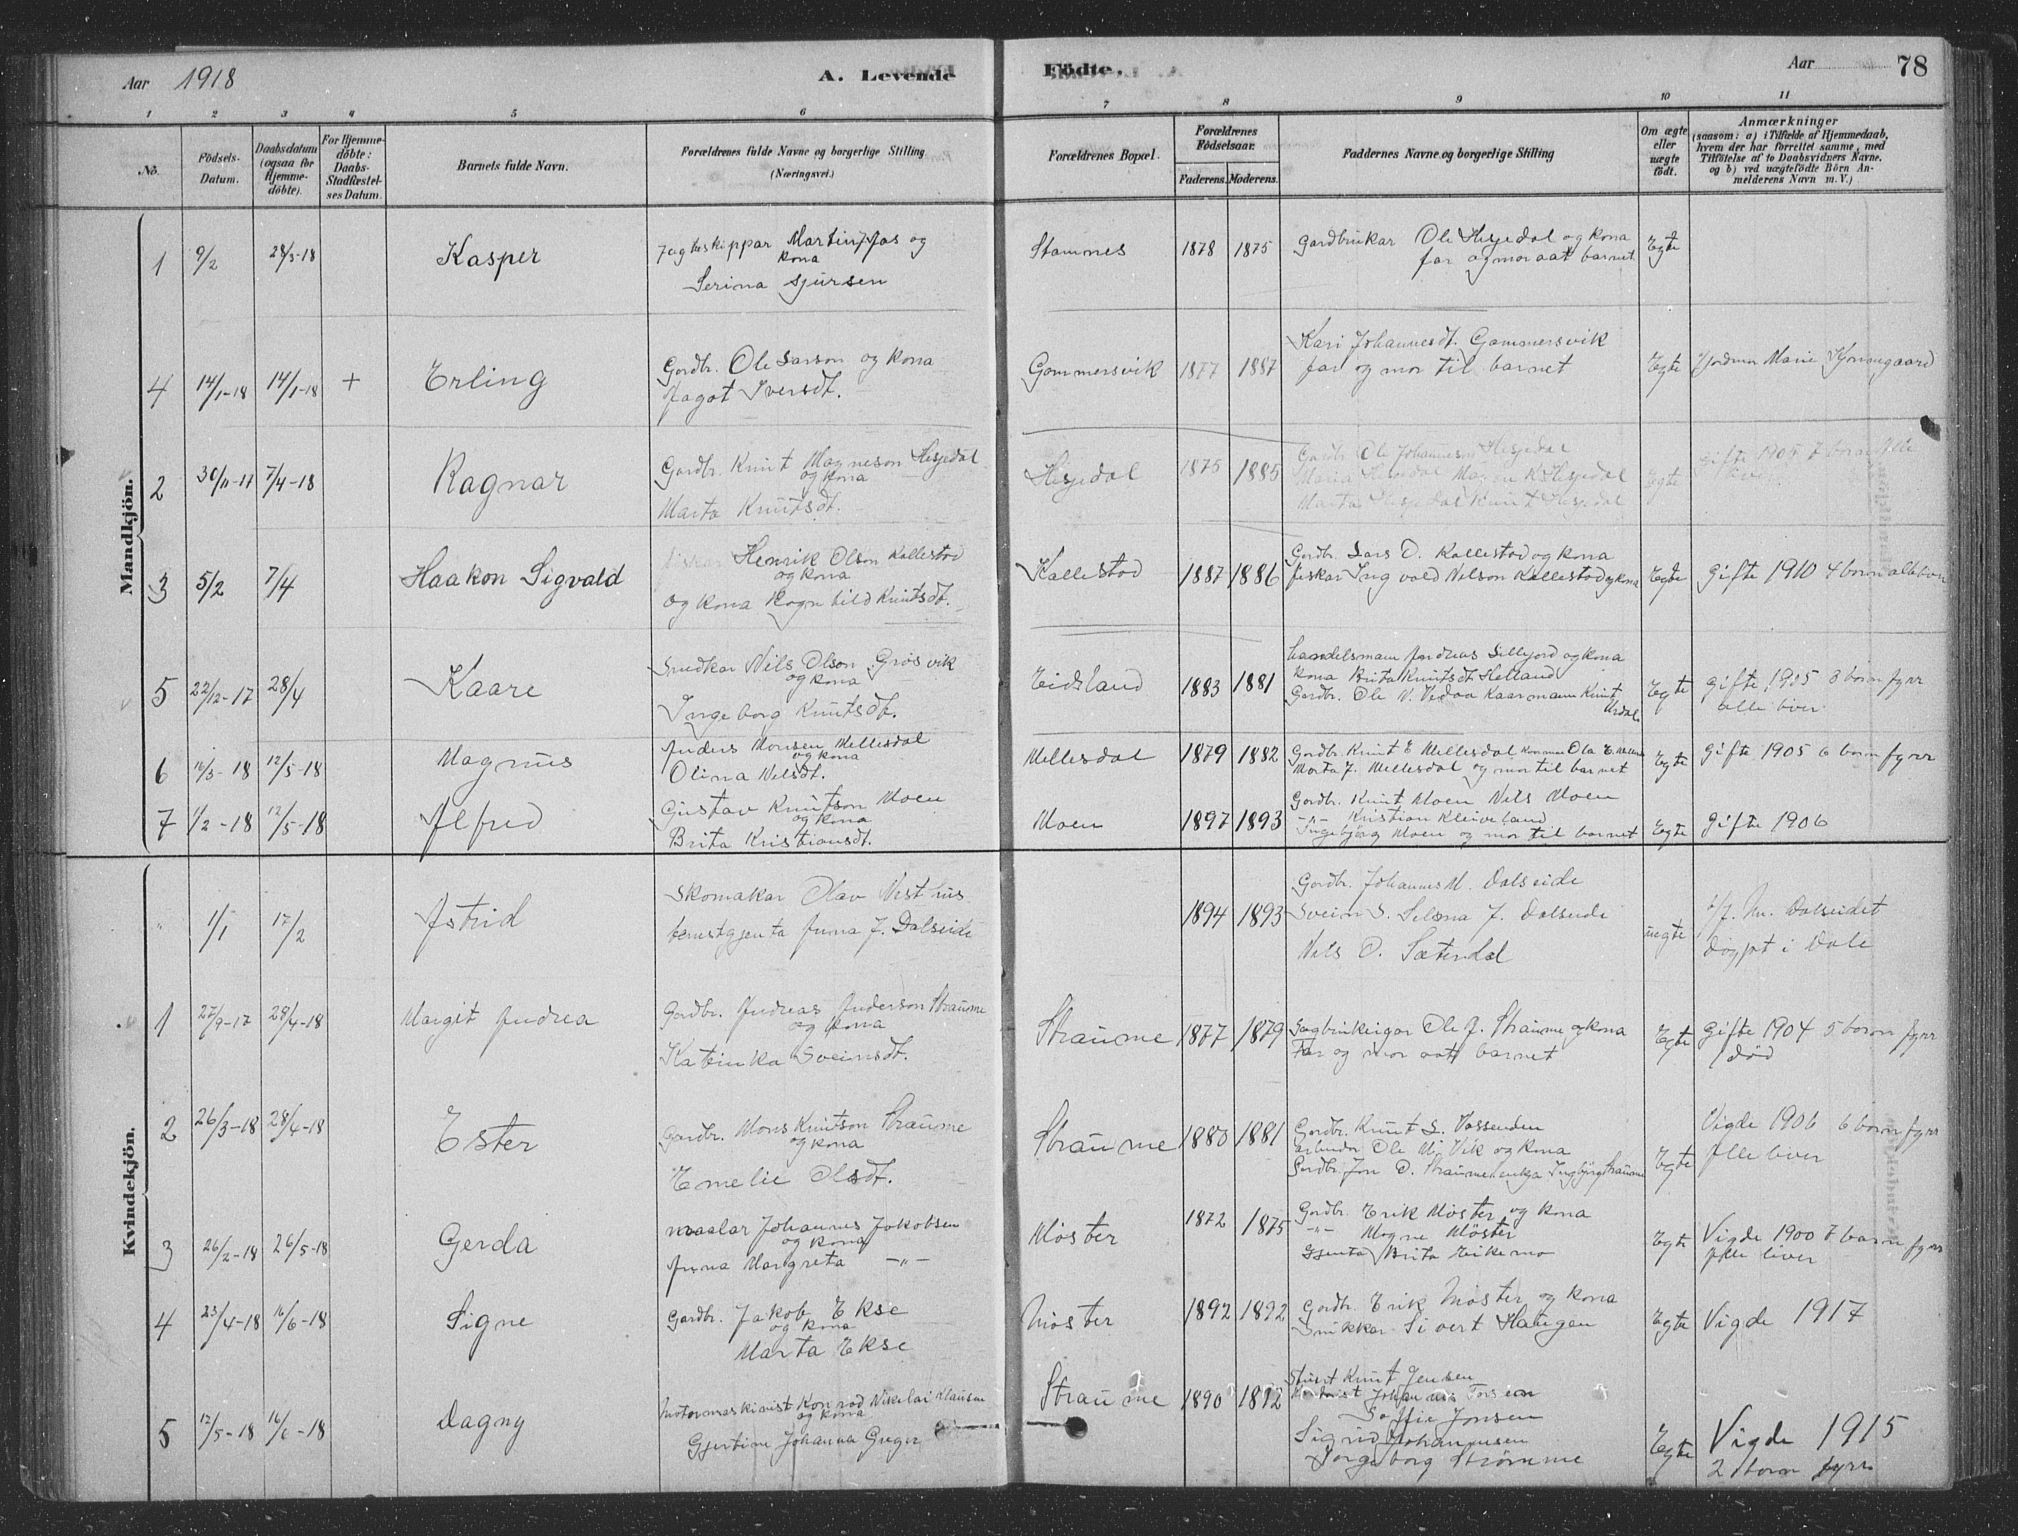 Aar 1918
A. Levende
Födte.
Aar
78
1 2 3 4 5 6 7 8 9 10 11
No.
Födsels-Datum.
Daabsdatum (ogsaa for Hjemme-döbte).
For Hjemme-döbte: Daabs-Stadfæstel-ses Datum.
Barnets fulde Navn.
Forældrenes fulde Navne og borgerlige Stilling (Næringsvei.)
Forældrenes Bopæl.
Forældrenes Födselsaar.
Faderens. Moderens.
Faddernes Navne og borgerlige Stilling
Om ægte eller uægte födt.
Anmærkninger
(saasom: a) i Tilfælde af Hjemmedaab,
hvem der har forrettet samme, med
Tilföielse af to Daabsvidners Navne.
og b) ved uægtefödte Börn An-
melderens Navn m. V.)
Mandkjön.
1 9/2 Kasper
Martin og
kona
Serina Sjursen
Stamnes 1878 1875
Gardbrukar Ole Hesjedal og kona
far og mor aat barnet
Egte
4 14/1-18 14/1-18 + Erling
Gardbr. Ole Larson og kona
Iversdt.
Gammersvik 1877 1887
Kari Johannesdt. Gammersvik
far og mor til barnet
Egte
Jordmor Marie
2 7/4-18 Ragnar
Gardbr. Knut Magneson Hesjedal
og kona
Marta Knutsdt.
Hesjedal 1875 1885
Gardbr. Ole Johanneson Hesjedal
Maria Hesjedal Hesjedal
Marta Hesjedal Knut Hesjedal
Egte
gifte 1905 7 born
3 5/2 7/4 Haakon Sigvald
Henrik Olson Kallestad
og kona
og kona Ragnhild Knutsdt.
Kallestad 1887 1886
Gardbr. Lars O. Kallestad og kona
fiskar Ingvald Nilson Kallestad og kona
Egte
Gifte 1910 4 born
5 22/12-17 28/4 Kaare
Snedkar Nils Olson
og kona
Ingeborg Knutsdt.
Eidsland 1883 1881
handelsmann Andreas og kona
kona Brita Knutsdt. Helland
Gardbr. Ole Knut
Urdal
Egte
gifte 1905 born fyrr
alle liver
6 12/5-18 Magnus
Anders Monsen Mellesdal
og kona
Olina Nilsdt.
Mellesdal 1879 1882
Gardbr. Knut E Mellesdal Ola E.
Marta J. Mellesdal og mor til barnet
Egte
Gifte 1905 6 born fyrr
7 1/2-18 12/5-18 Alfred
Gustav Knutson Moen
og kona
Brita Kristiansdt.
Moen 1897 1893
Gardbr. Knut Moen Nils Moen
-"- Kristian Kleiveland
Ingebjørg Moen og mor til barnet
Egte
Gifte 1906
Kvindekjön.
" 1/1 17/2 Astrid
Skomakar Olav Vesthus
tenestgjenta Anna J. Dalseide
1894 1893
Gardbr. Johannes M. Dalseide
Svein S. J. Dalseide
Nils O. Sætendal
uegte
Dalseidet
døypt i Dale
1 27/9-17 28/4-18 Margit Andrea
Gardbr. Andreas Anderson Straume
og kona
Katrinka Sveinsdt.
Straume 1877 1879
Ole J. Straume og kona
Far og mor aat barnet
Egte
Gifte 1904 5 born fyrr
1 død
2 26/3-18 28/4-18 Ester
Gardbr. Mons Knutson Straume
og kona
Emelie Olsdt.
Straume 1880 1881
Gardbr. Knut S. Vassenden
arbeidar Ole M. Vik og kona
Gardbr. Jon O. Straume enkja Ingbjørg Straume
Egte
Vigde 1906 6 born fyrr
Alle liver
3 26/2-18 26/5-18 Gerda
maalar Johannes Jakobsen
og kona
Anna Margreta -"-
Møster 1872 1875
Gardbr. Erik Møster og kona
-"- Mogne Møster
Gjenta Brita Eikemo
Egte
Vigde 1900 7 born fyrr
Alle liver
4 23/4-18 16/6-18 Signe
Gardbr. Jakob Ekse
og kona
Marta Ekse
Møster 1892 1892
Gardbr. Erik Møster og kona
Snikkar Sivert Haugen
Egte
Vigde 1917
5 12/5-18 16/6-18 Dagny
Motormaskinist Konrad Nikolai Klausen
og kona
Gjertine Johanna Greger
Straume 1890 1892
Knut Jensen
Johannes
Soffie Jonsen
Sigrid Johannesen
Ingeborg Strømme
Egte
Vigde 1915
2 born fyrr